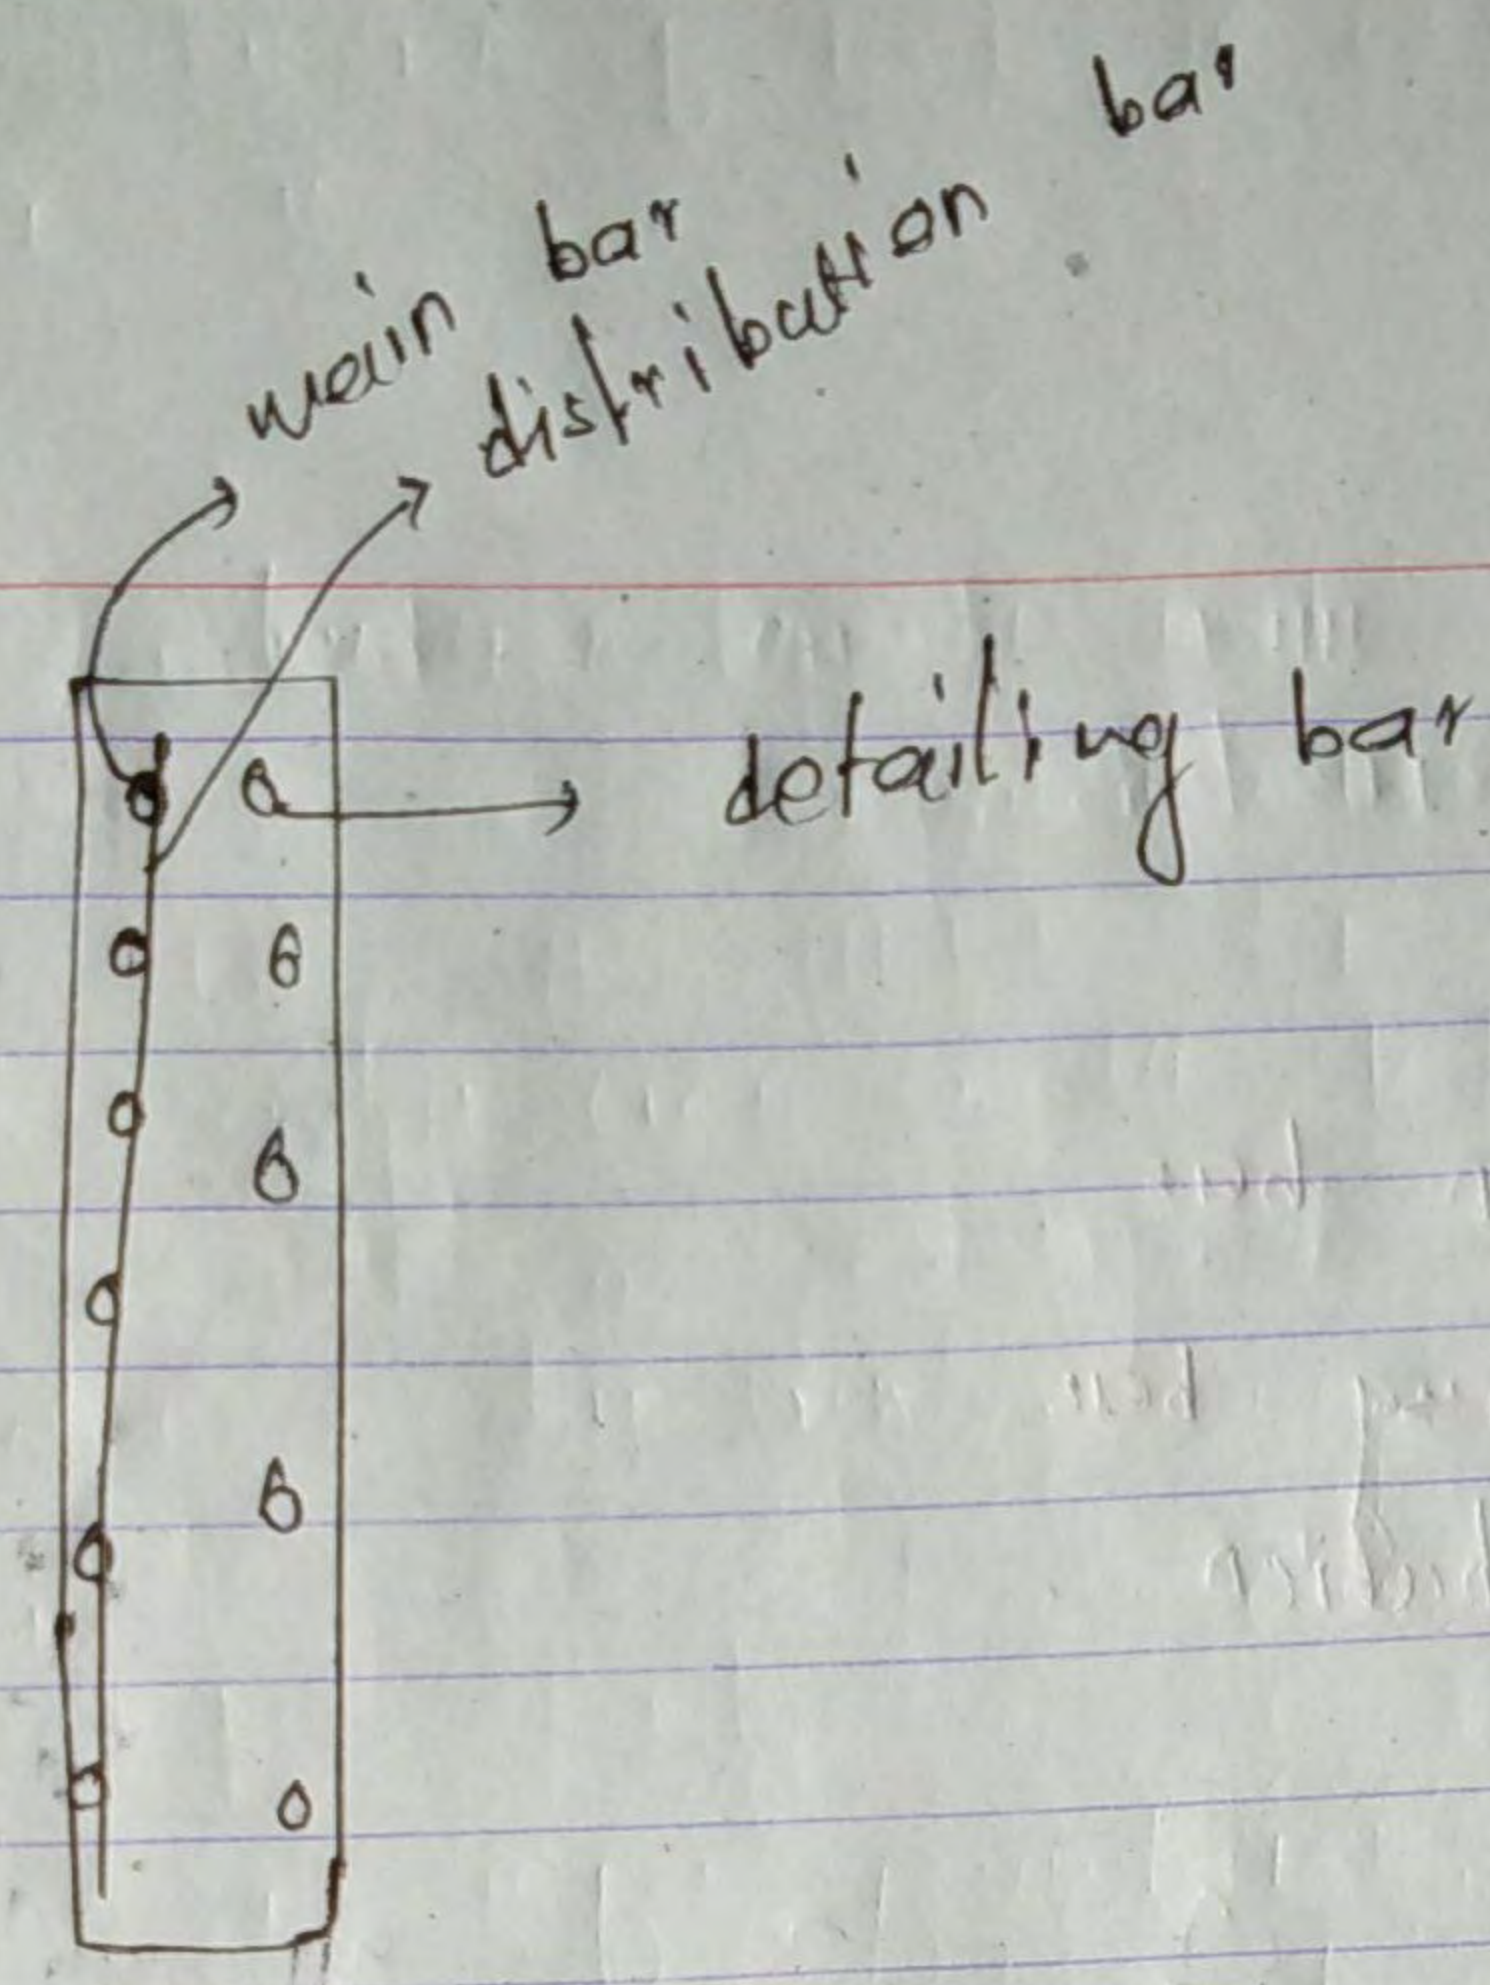 main bar
distribution bar
detailing bar